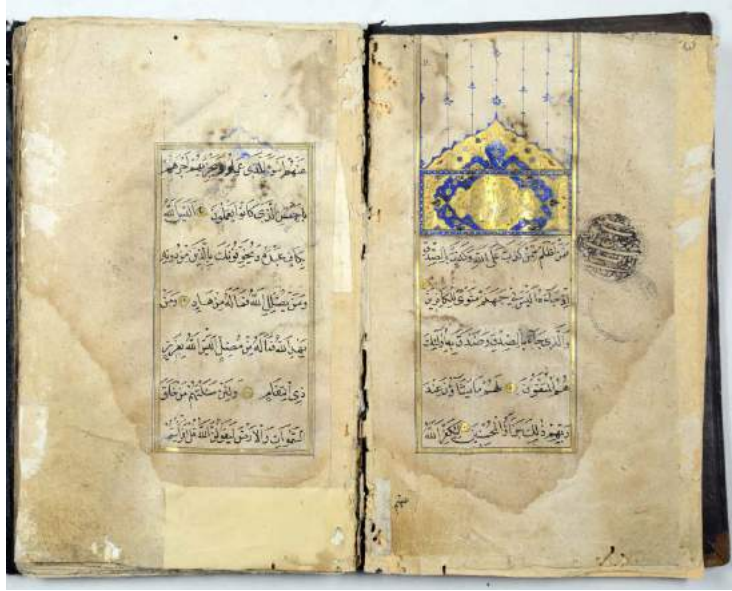 فمن اظلم ممن كذب على الله وكذب بالصدق
اذ جاءه اليس في جهنم مثوى للكافرين
والذي جاء بالصدق وصدق به اولئك
هم المتقون لهم ما يشاؤن عند
ربهم ذلك جزاؤ المحسنين ليكفر الله
عنهم اسوء الذي عملوا ويجزيهم اجرهم
باحسن الذي كانوا يعملون اليس الله
بكاف عبده ويخوفونك بالذين من دونه
ومن يضلل الله فما له من هاد ومن
يهد الله فما له من مضل اليس الله بعزيز
ذي انتقام ولئن سئلتهم من خلق
السموات والارض ليقولن الله قل افرأيتم